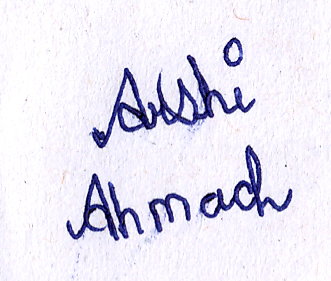 Arshi
Ahmad